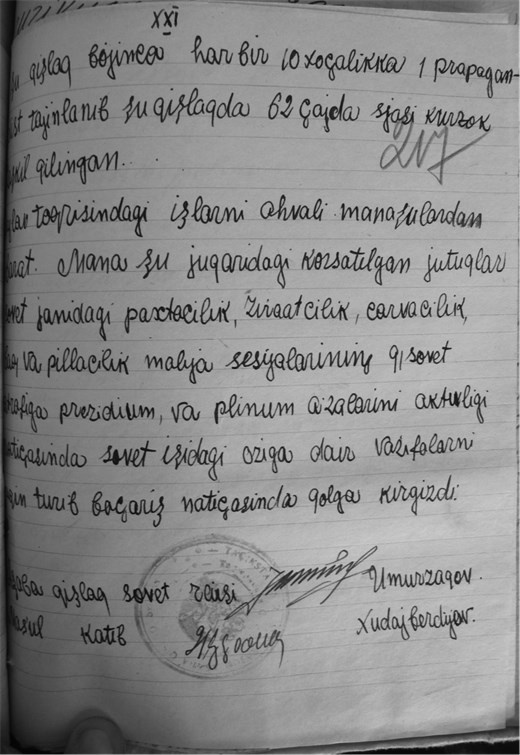 XXI
qişlaq bojinca har bir 10 xoçalikka 1 prapagan-
st tajinlanib şu qişlaqda 62 çajda sjasi kurzok
kil qilingan.
217
toqrisindagi işlarni ahvali manaşulardan
arat. Mana şu juqaridagi korsatilgan jutuqlar
sovet janidagi paxtacilik, ziraatcilik, carvacilik,
va pillacilik malija sesijalarining 91 sovet
prezidium, va plinum a'zalarini aktivligi
natiçasinda sovet işidagi oziga dair vazifalarni
turib baçariş natiçasinda qolga kirgizdi:
qişlaq sovet raisi Umurzaqov.
Masul Katib Xudajberdijev.